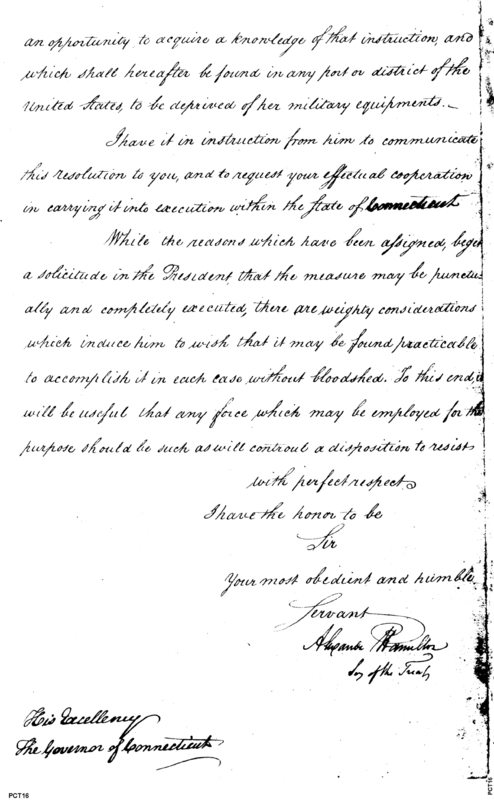 an opportunity to acquire a knowledge of that instruction, and
which shall hereafter be found in any port or district of the
United States, to be deprived of her military equipments._
I have it in instruction from him to communicate
this resolution to you, and to request your effectual cooperation
in carrying it into execution within the State of Connecticut
While the reasons which have been assigned, beget
a solicitude in the President, that the measure may be punctu-
ally and completely executed, there are weighty considerations
which induce him to wish that it may be found practicable
to accomplish it in each case without bloodshed. To this end,
will be useful that any force which may be employed for the
purpose should be such as will controul a disposition to resist
with perfect respect
I have the honor to be
Sir
Your most obedient and humble
Servant
Alexander Hamilton
Sy of the Treasy
His Excellency
The Governor of Connecticut
PCT16
PCT16